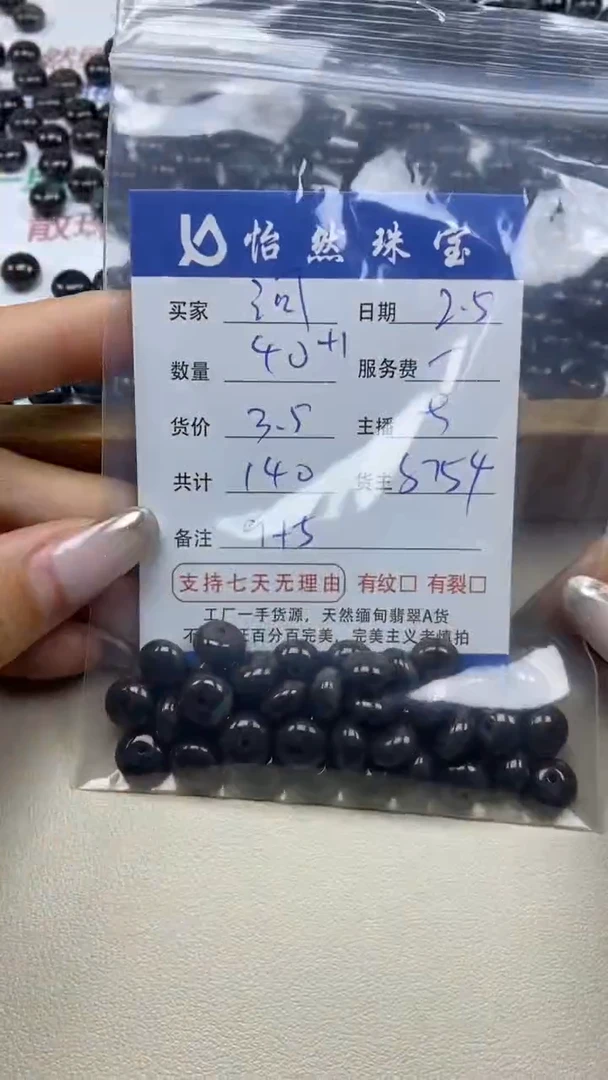 怡然珠宝
买家 日期 2.5
数量 40+1 服务费
货价 3.5 主播 5
共计 140 货主 8754
备注 9+5
支持七天无理由 有纹□ 有裂□
工厂一手货源，天然缅甸翡翠A货
不 证百分百完美，完美主义者慎拍
散珠